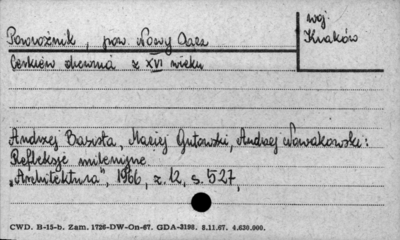 woj.
Kraków
Powroźnik, pow. Nowy Sącz
Cerkiew drewnia z XVI wieku
Andrzej Basista, Maciej Gutowski, Andrzej Nowakowski:
Refleksje milenijne
„Architektura", 1966, z. 12, s. 527,
CWD. B-15-b. Zam. 1726-DW-On-67. GDA-3198. 8.11.67. 4,630.000.